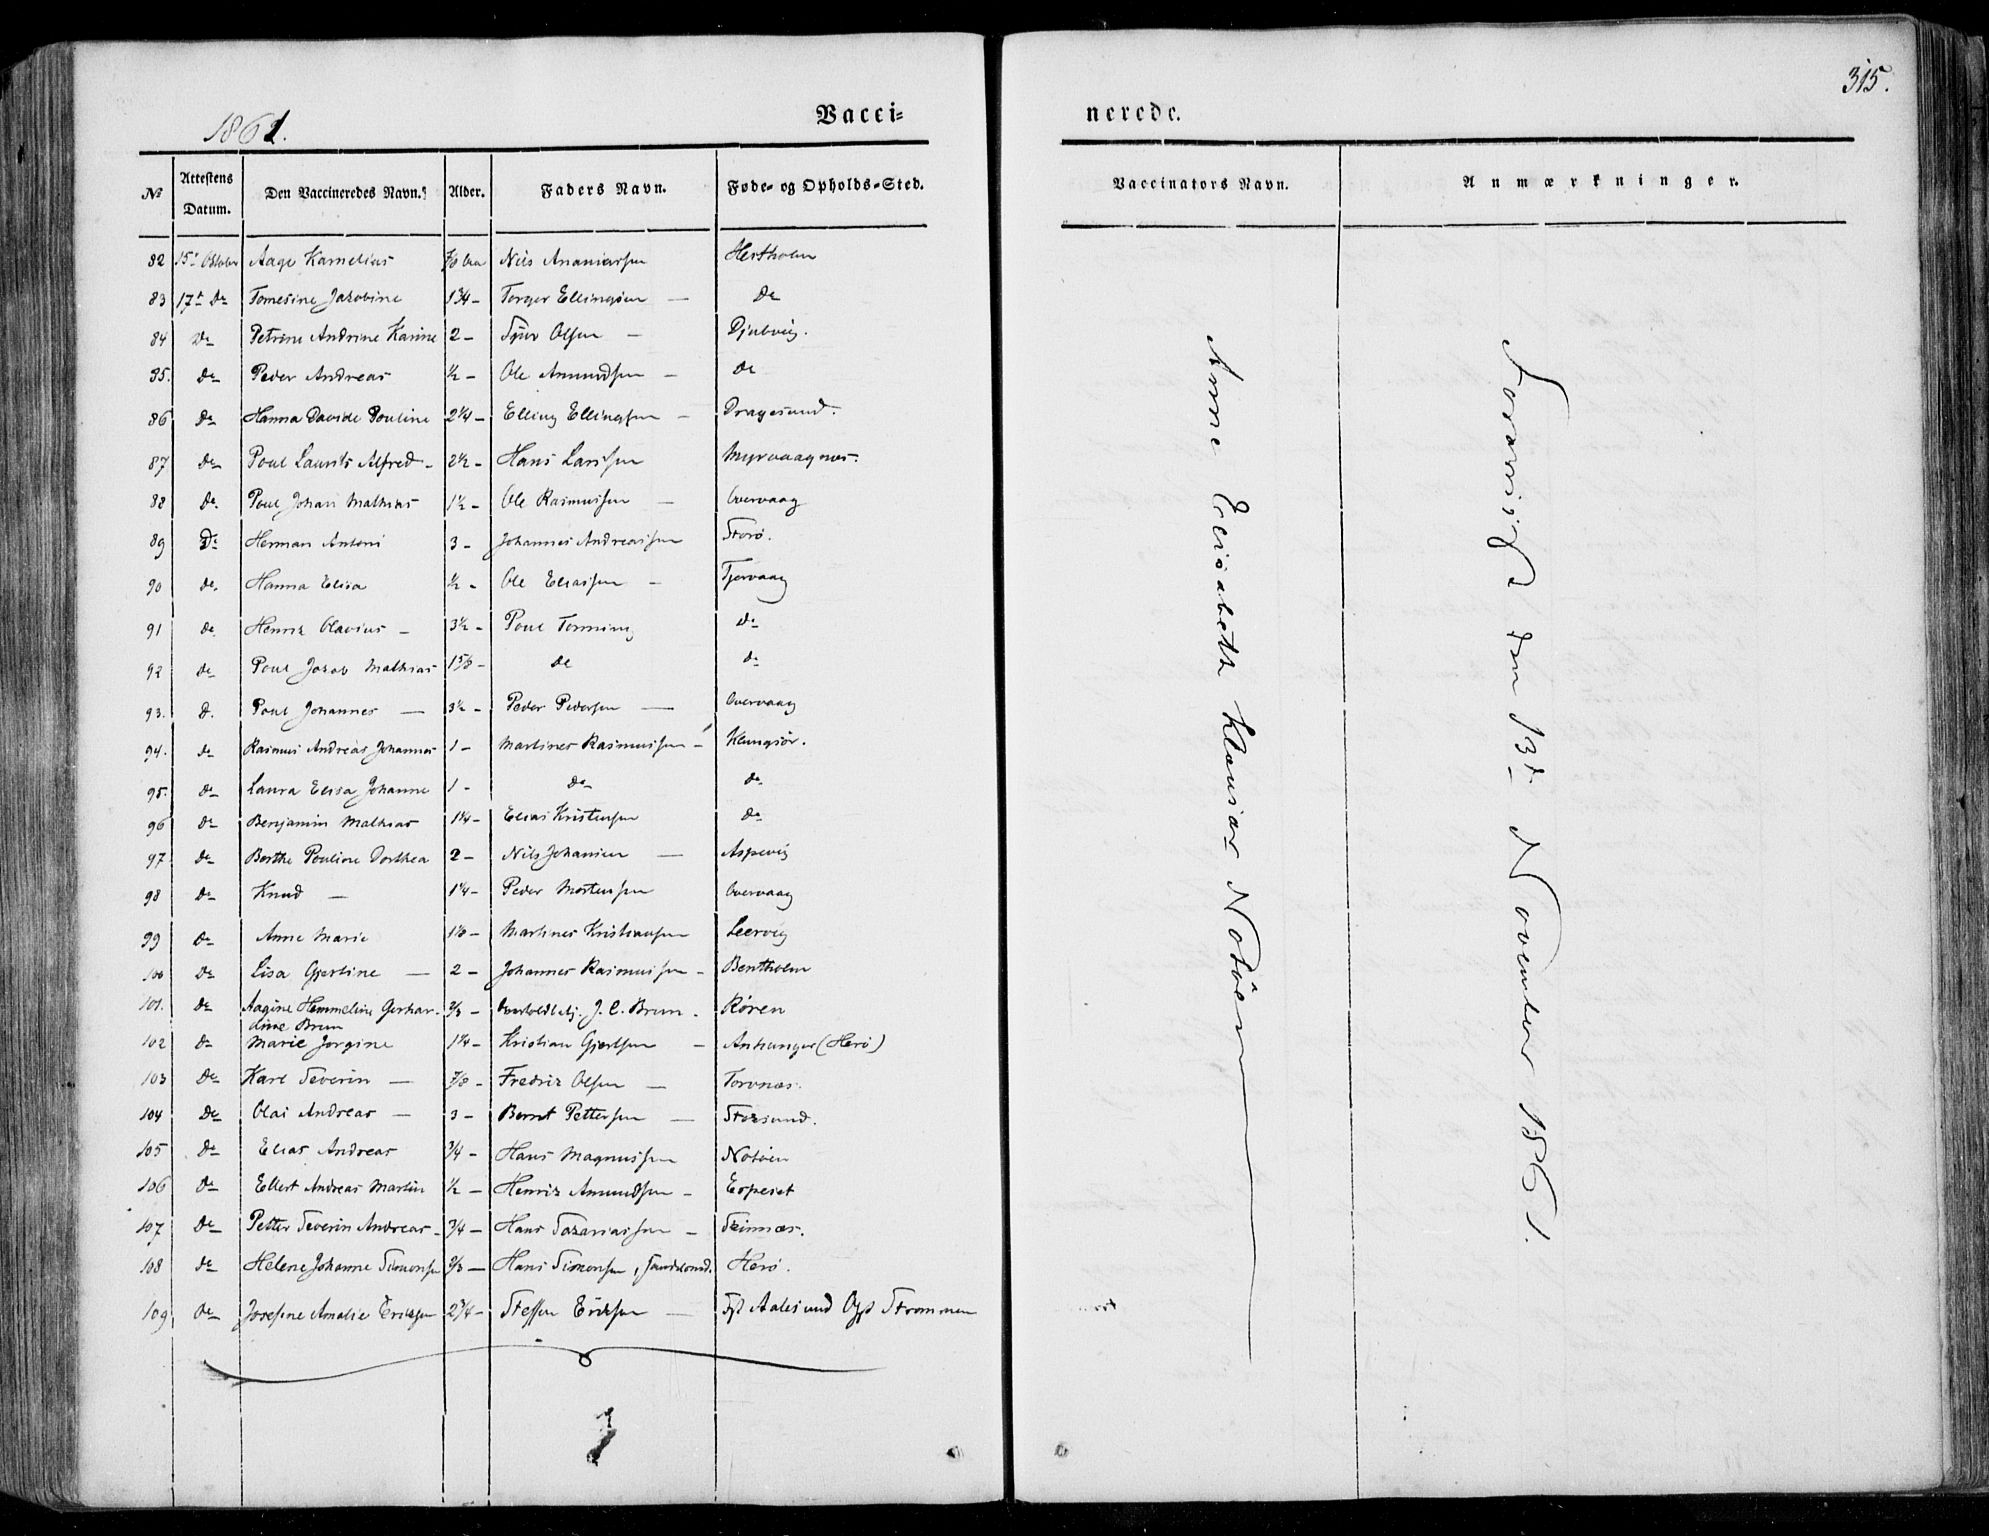 315.
1861.
Vacci=
nerede.
No
Attestens Datum.
Den Vaccineredes Navn.
Alder.
Faders Navn.
Føde- og Opholds-Sted.
Vaccinators Navn.
Anmærkninger.
82 15' Oktober Aage Kornelius Nils Ananiassen Hestholm
83 17t Do Tomesine Jakobine 1 3/4 - Torger Ellingsen — Do
84 Do Petrine Andrine Karine 2 - Sjur Olsen — Djubvig.
85. do Peder Andreas ½ - Ole Amundsen — do
86 do Hanna Davide Pouline 2¼ - Elling Ellingsen — Dragesund.
87 do Poul Laurits Alfred - 2½ - Hans Larssen Myrvaagnes.
88 do. Poul Johan Mathias 1½ - Ole Rasmussen — Overvaag
89 Do Herman Antoni 3 - Johannes Andreassen Storø.
90 do. Hanna Elisa ½ - Ole Eliassen — Tjervaag
91 do Henrik Olavius - 3½ - Poul Tonning do
92 do Poul Jakob Mathias do do
93. d. Poul Johannes — 3½ - Peder Pedersen — Overvaag
94. do Rasmus Andreas Johannes 1 - Martines Rasmussen - Klungsör.
95. do Laura Elisa Johanne 1 - do do
96 do Benjamin Mathias 1¼ - Elias Kristensen do
97 do Berthe Pouline Dorthea 2 - Nils Johansen — Aspevig
98 do Knud — 1¼ - Peder Mortensen Overvaag
99 do Anne Marie Martines Kristiansen Leervig
100 do Lisa Gjertine — 2 - Johannes Rasmussen - Bentholm
101. do Aagine Hemmeline Gerhar-
dine Brun ⅔ - J. C. Brun. Røren
102 do Marie Jørgine 1¼ - Kristian Gjertsen — (Herö)
103 do Karl Severin — 7/8 - Fredrik Olsen — Torvnæs.
104 do Olai Andreas — 3 - Bernt Pettersen — Storsund.
105 do Elias Andreas ¾ - Hans Magnussen Notöen
106 do Ellert Andreas Martin ½ - Henrik Amundsen - Espeset
107 do Petter Severin Andreas - ¾ - Hans Sakariassen - Skinnæs.
108 do Helene Johanne Simonsen ⅔ - Hans Simonsen, Herø.
109 do Josefine Amalie Eriksen 2¾ - Steffen Eriksen — Fst Aalesund Opst Strømmen
Anne Elisabeth Klausiar Notöen
Foransvig den 13d November 1861.